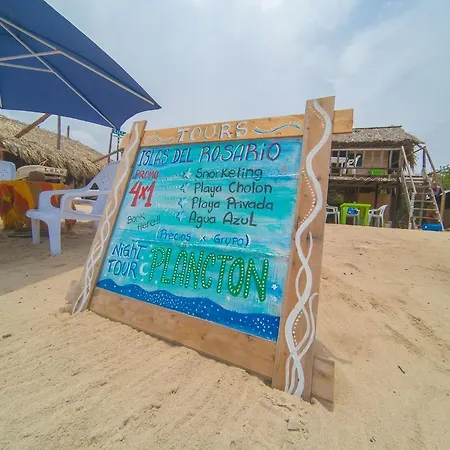 TOURS
ISLAS DEL ROSARIO
PROMO
4x1
Snorkeling
Playa Cholon
Playa Privada
Agua Azul
(Precios x Grupo)
NIGHT
TOUR
PLANCTON